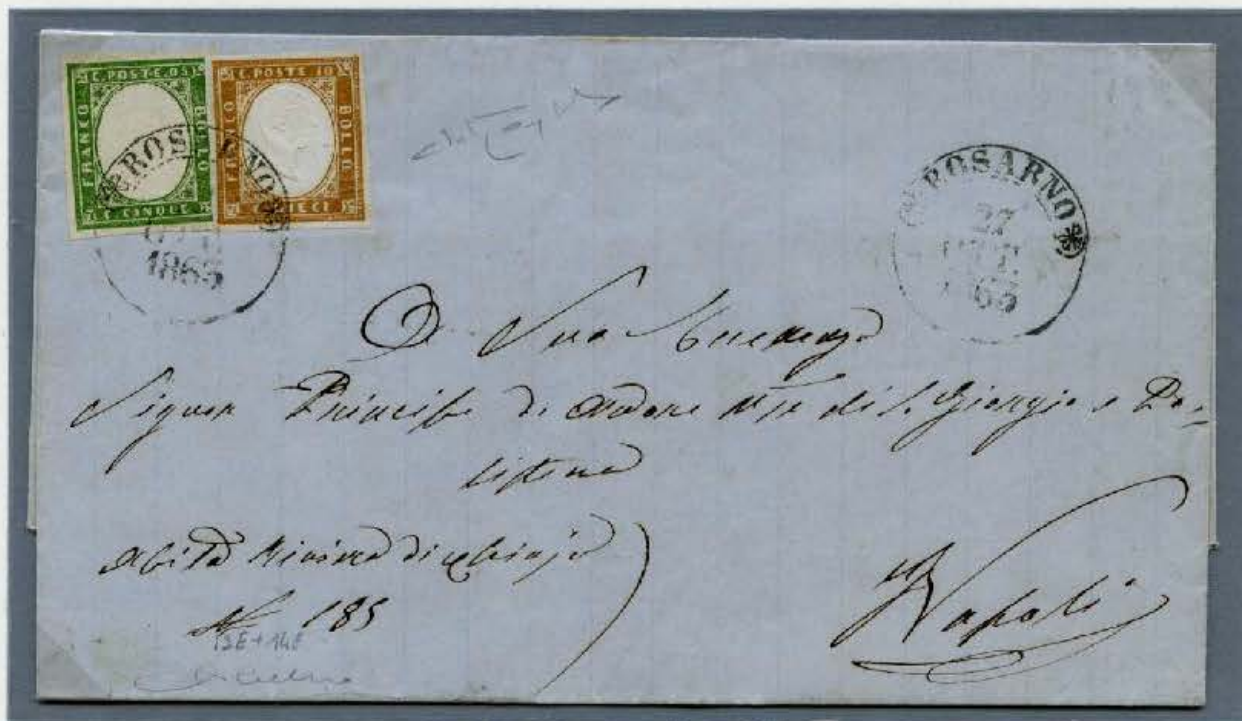 C. POSTE. 05
FRANCO
BOLLO
C. CINQUE
C. POSTE 10
FRANCO
BOLLO
C. DIECI
ROS NO
1863
ROSARNO
27
OTT.
63
A Sua Eccellenza
Signor Principe di Ardore M.se di S. Giorgio e Po=
listena
Abita Riviera di Chiaja
N. 185
Napoli
13E + 14E